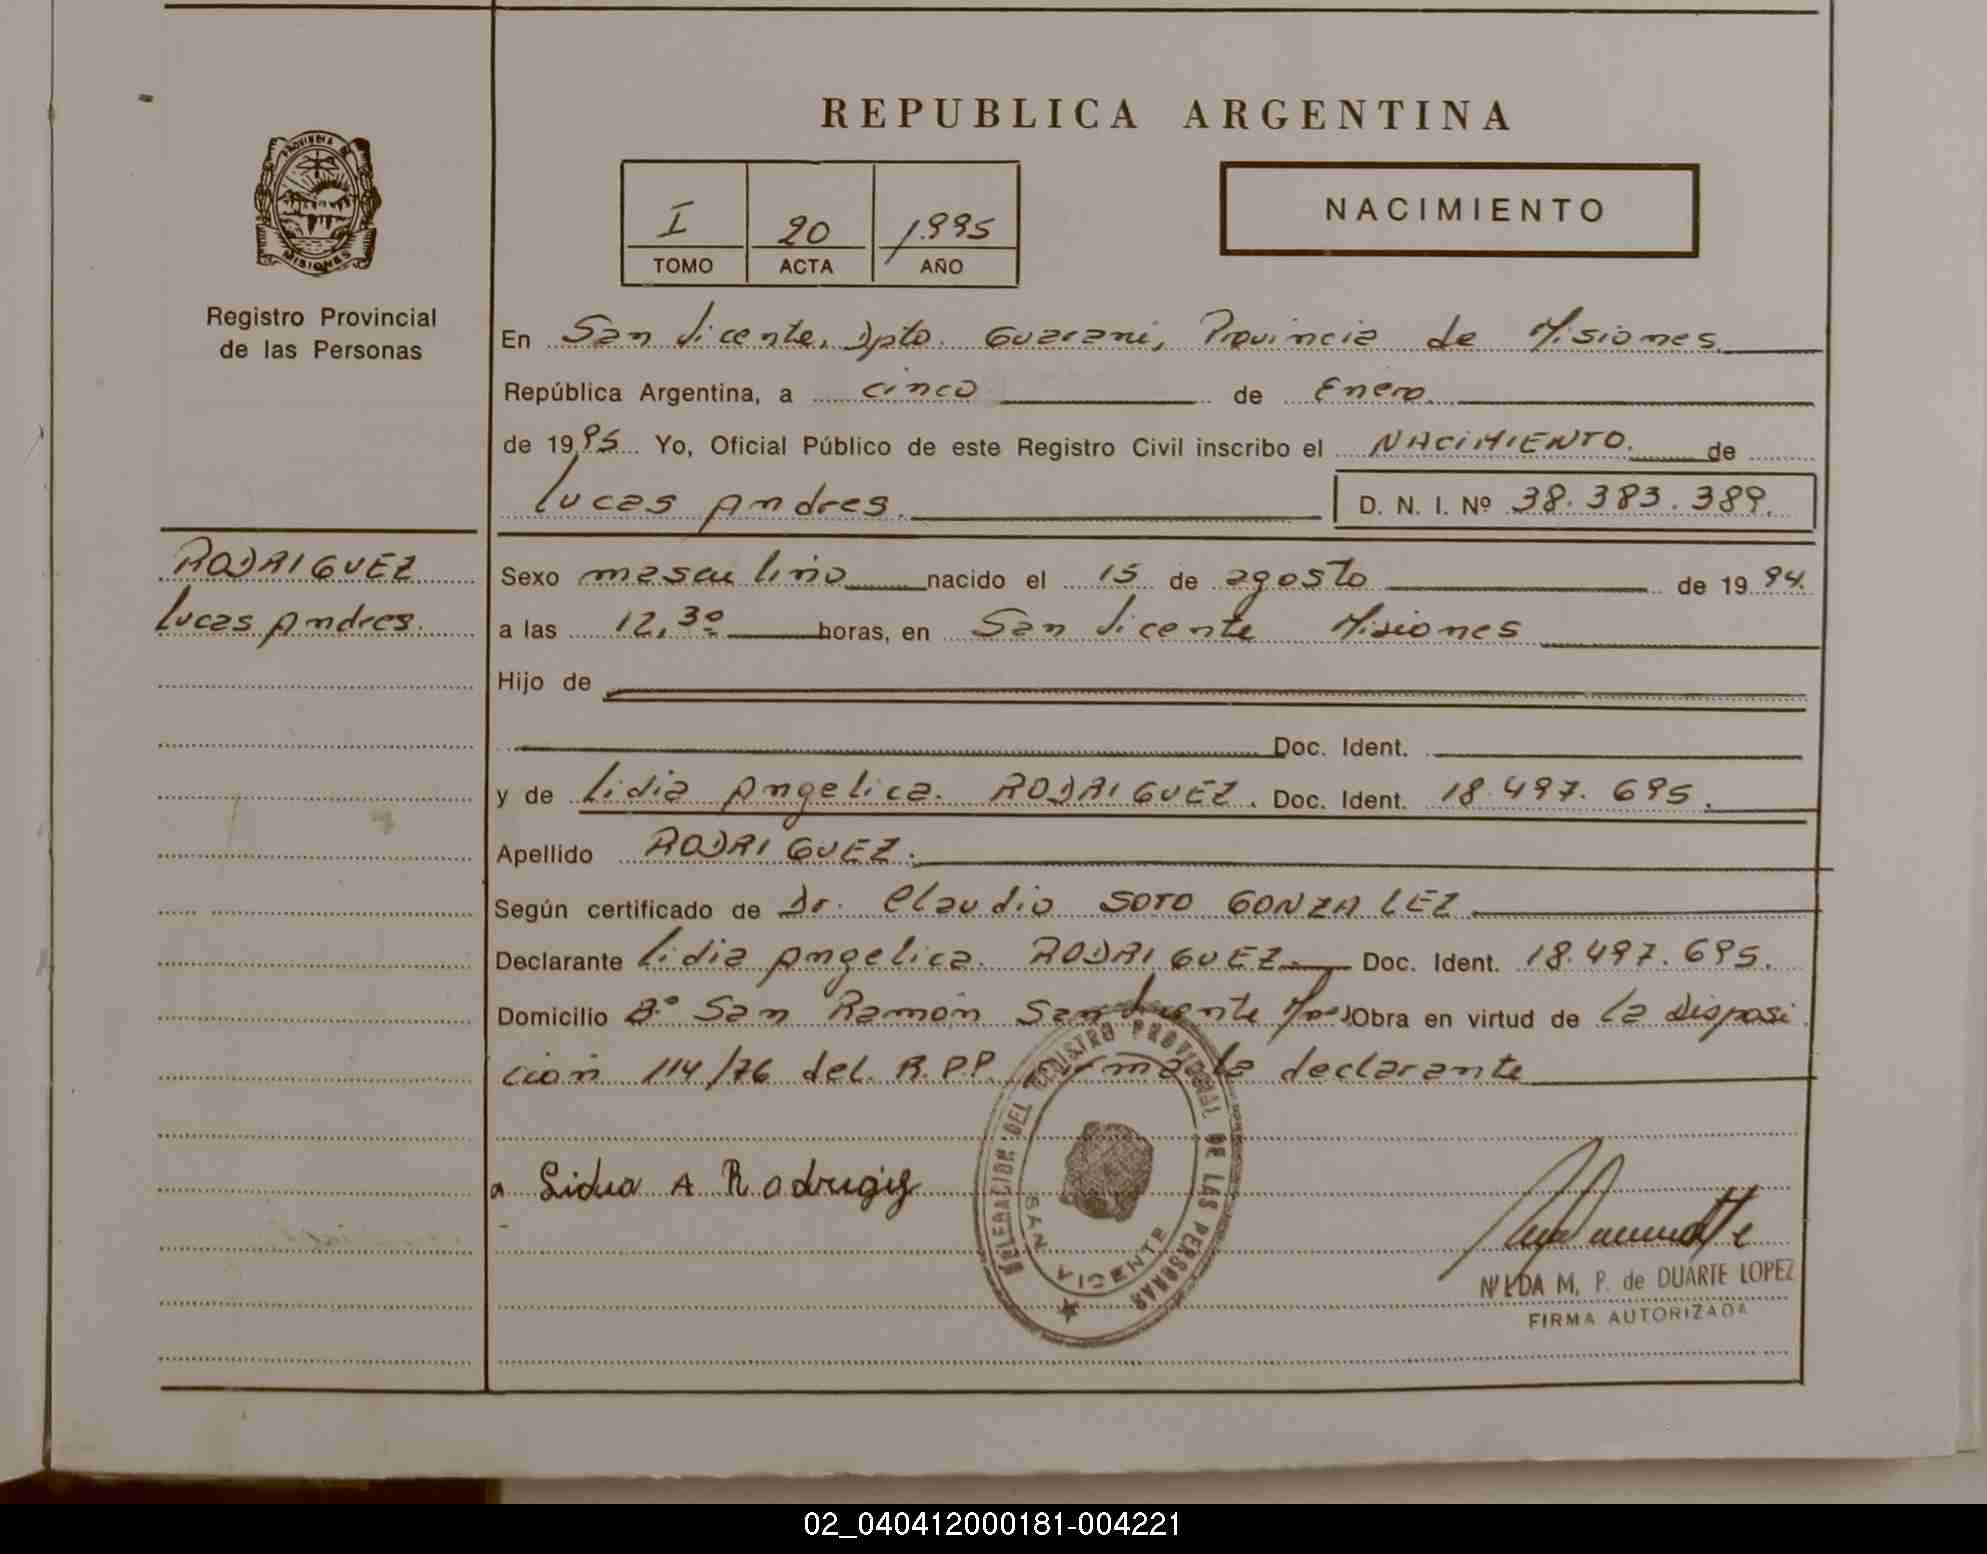 REPUBLICA ARGENTINA
PROVINCIA DE
MISIONES
Registro Provincial
de las Personas
I 20 1995
TOMO ACTA AÑO
NACIMIENTO
En San Vicente, Dpto. Guarani, Provincia de Misiones
República Argentina, a cinco de Enero
de 1995 Yo, Oficial Público de este Registro Civil inscribo el NACIMIENTO de
Lucas Andres. D. N. I. Nº 38.383.389.
RODRIGUEZ
Lucas Andres.
Sexo masculino nacido el 15 de agosto de 1994.
a las 12,30 horas, en San Vicente Misiones
Hijo de
Doc. Ident.
y de Lidia Angelica. RODRIGUEZ. Doc. Ident. 18.497.695.
Apellido RODRIGUEZ.
Según certificado de Dr. Claudio SOTO GONZALEZ
Declarante Lidia Angelica. RODRIGUEZ. Doc. Ident. 18.497.695.
Domicilio Bº San Ramón San Vicente Mnes Obra en virtud de la Disposi
ción 114/76 del R.P.P. Firma la declarante
DELEGACION DEL REGISTRO PROVINCIAL DE LAS PERSONAS
SAN VICENTE
a Lidia A Rodrigig
NILDA M. P. de DUARTE LOPEZ
FIRMA AUTORIZADA
02_040412000181-004221